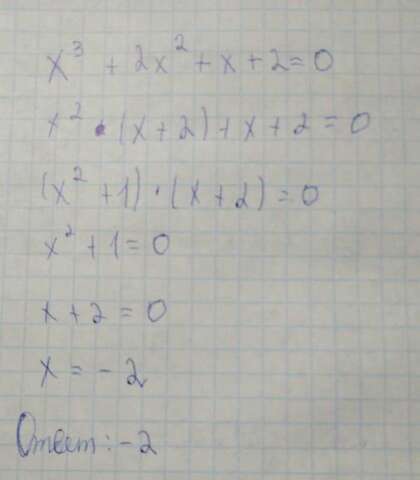 x³ + 2x² + x + 2 = 0
x² · (x + 2) + x + 2 = 0
(x² + 1) · (x + 2) = 0
x² + 1 = 0
x + 2 = 0
x = - 2
Ответ: - 2